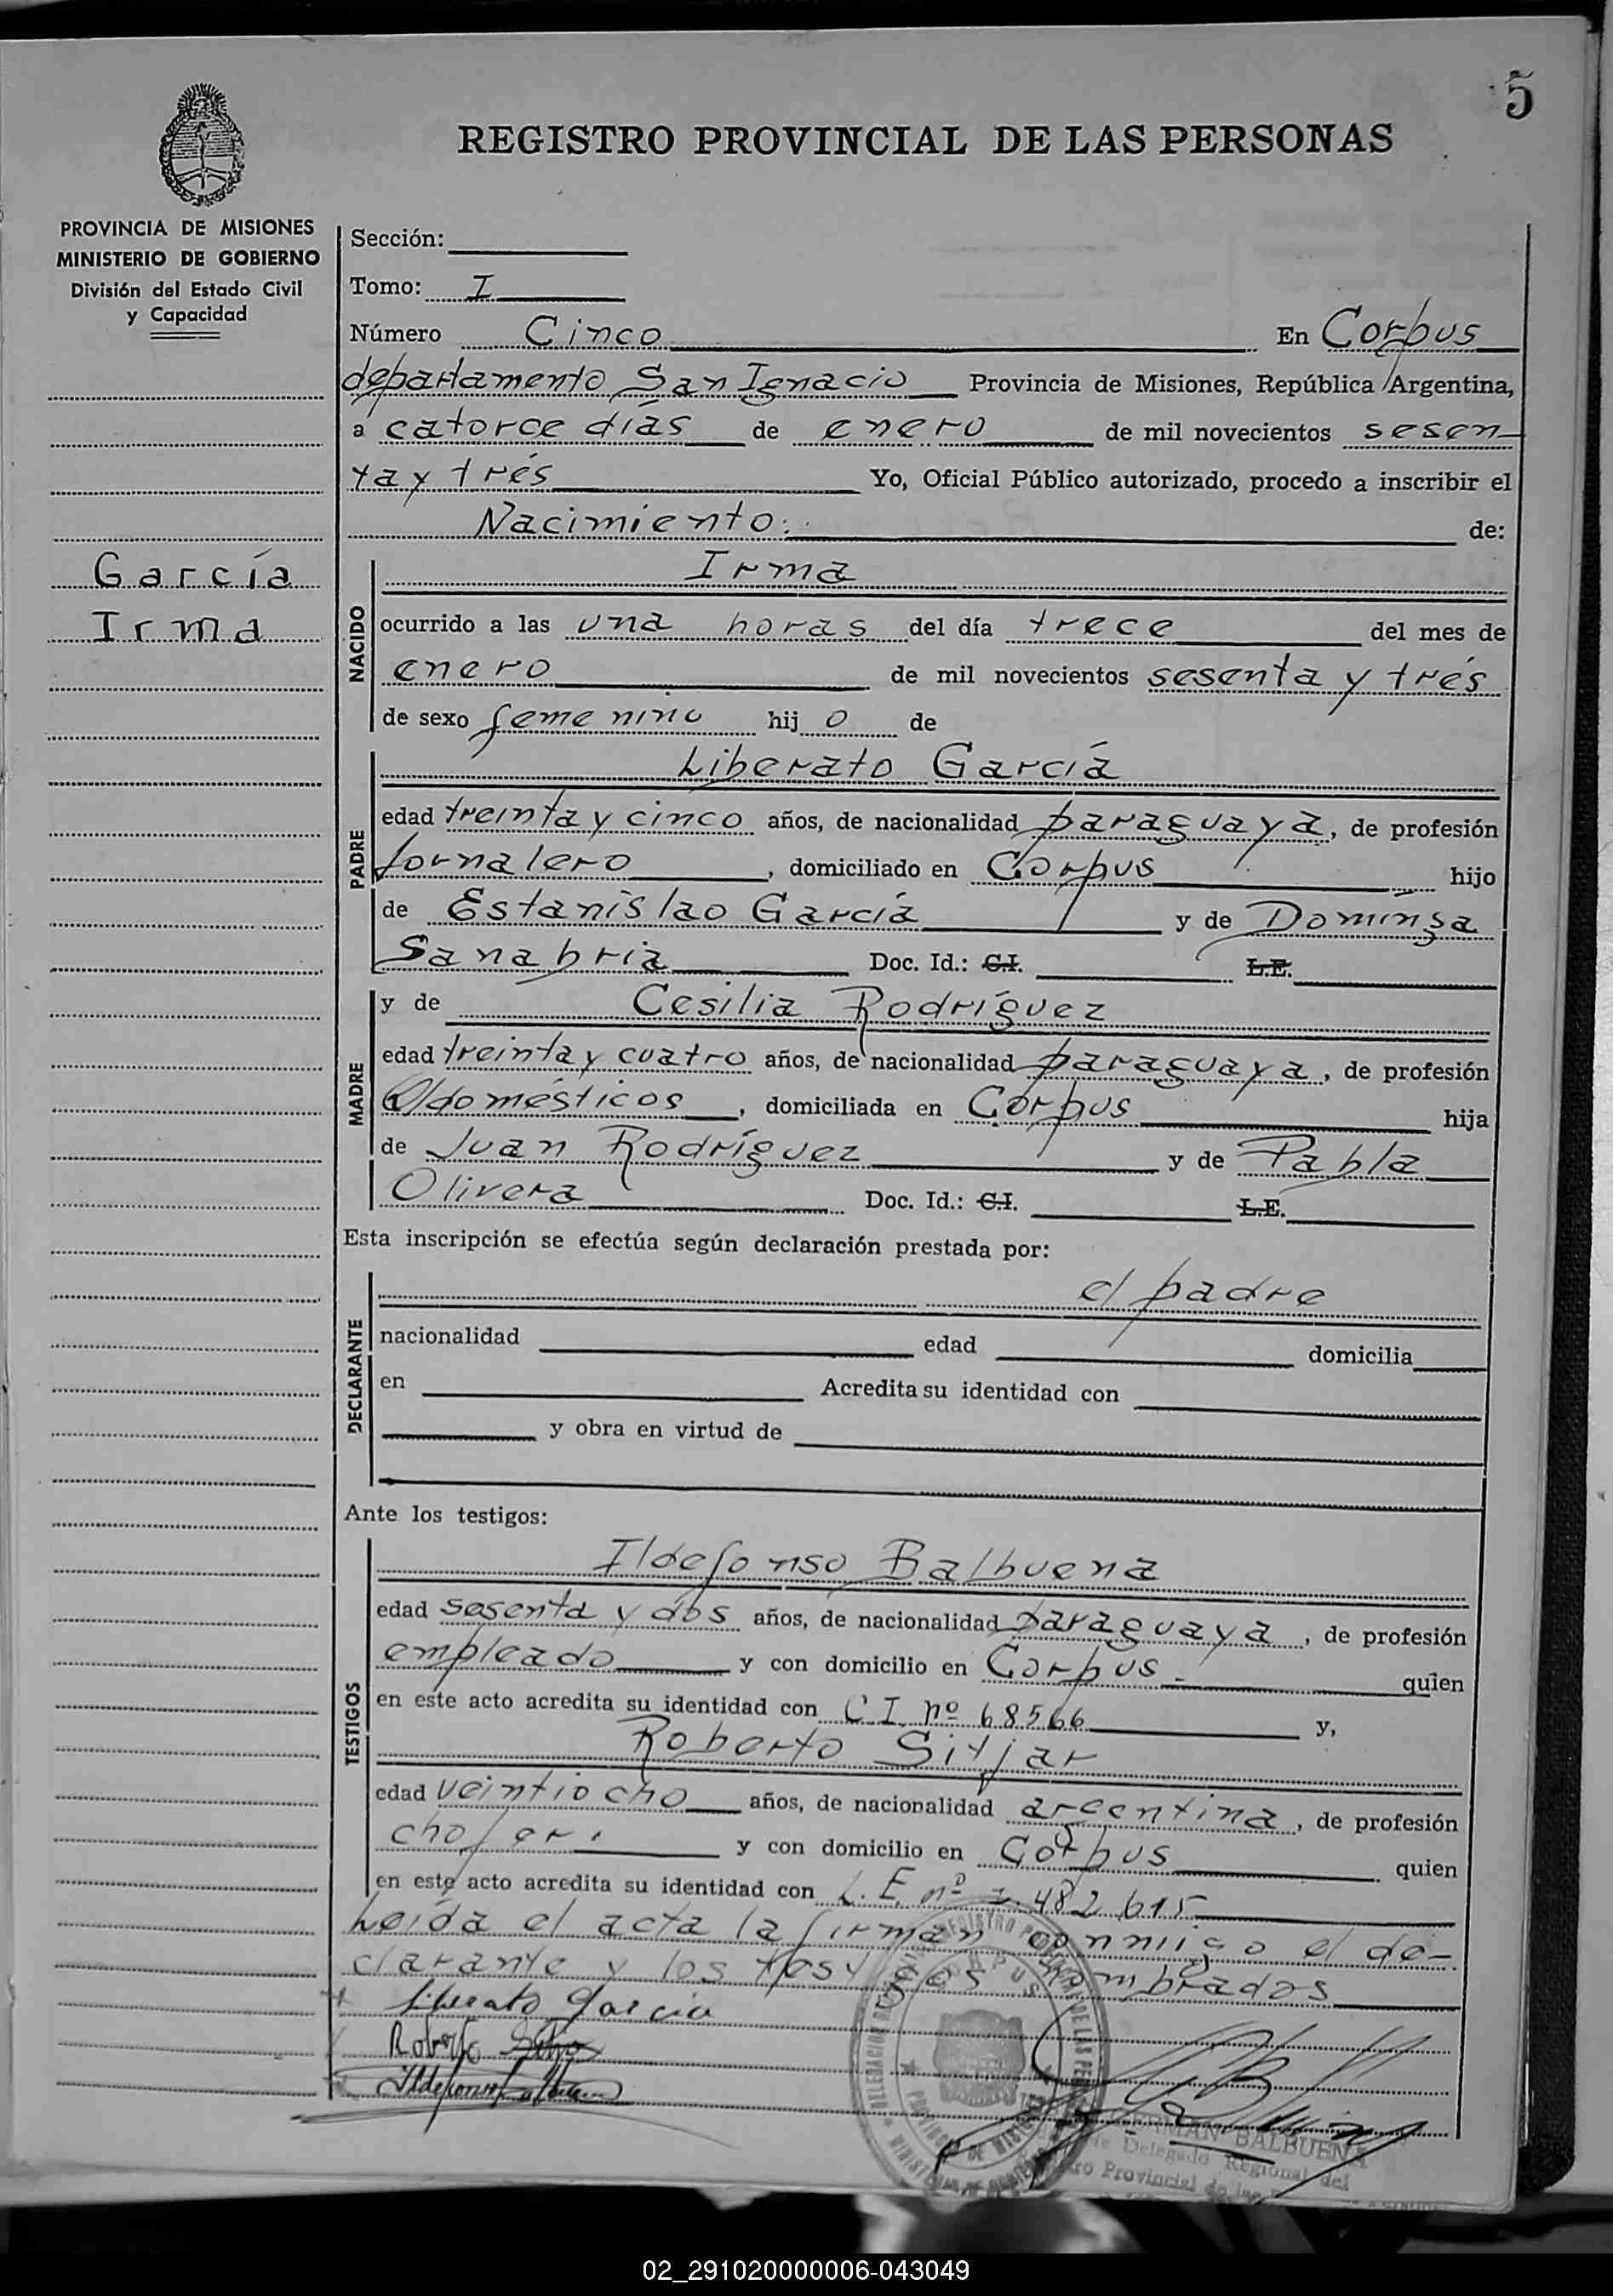 5
REGISTRO PROVINCIAL DE LAS PERSONAS
PROVINCIA DE MISIONES
MINISTERIO DE GOBIERNO
División del Estado Civil
y Capacidad
García
Irma
Sección:
Tomo: I
Número Cinco En Corpus
departamento San Ignacio Provincia de Misiones, República Argentina,
a catorce días de enero de mil novecientos sesen
ta y trés Yo, Oficial Público autorizado, procedo a inscribir el
Nacimiento: de:
NACIDO
Irma
ocurrido a las una horas del día trece del mes de
enero de mil novecientos sesenta y trés
de sexo femenino hijo de
PADRE
Liberato García
edad treinta y cinco años, de nacionalidad paraguaya, de profesión
Jornalero, domiciliado en Corpus hijo
de Estanislao García y de Dominga
Sanabria Doc. Id.: C.I. L.E.
MADRE
y de Cesilia Rodríguez
edad treinta y cuatro años, de nacionalidad paraguaya, de profesión
Q/domésticos, domiciliada en Corpus hija
de Juan Rodríguez y de Pabla
Olivera Doc. Id.: C.I. L.E.
Esta inscripción se efectúa según declaración prestada por:
DECLARANTE
el padre
nacionalidad edad domicilia
en Acredita su identidad con
y obra en virtud de
Ante los testigos:
TESTIGOS
Ildefonso Balbuena
edad sesenta y dos años, de nacionalidad paraguaya, de profesión
empleado y con domicilio en Corpus quien
en este acto acredita su identidad con C I nº 68566 y,
Roberto Sitjar
edad veintiocho años, de nacionalidad argentina, de profesión
chofer y con domicilio en Corpus quien
en este acto acredita su identidad con L.E. nº 482 615
Leída el acta la firman conmigo el de-
clarante y los testigos nombrados
Liberato Garcia
Roberto
Ildefonso Balbuena
CORPUS
PROVINCIA DE MISIONES
GERMAN BALBUENA
Delegado Regional del
Provincial de las
02_291020000006-043049